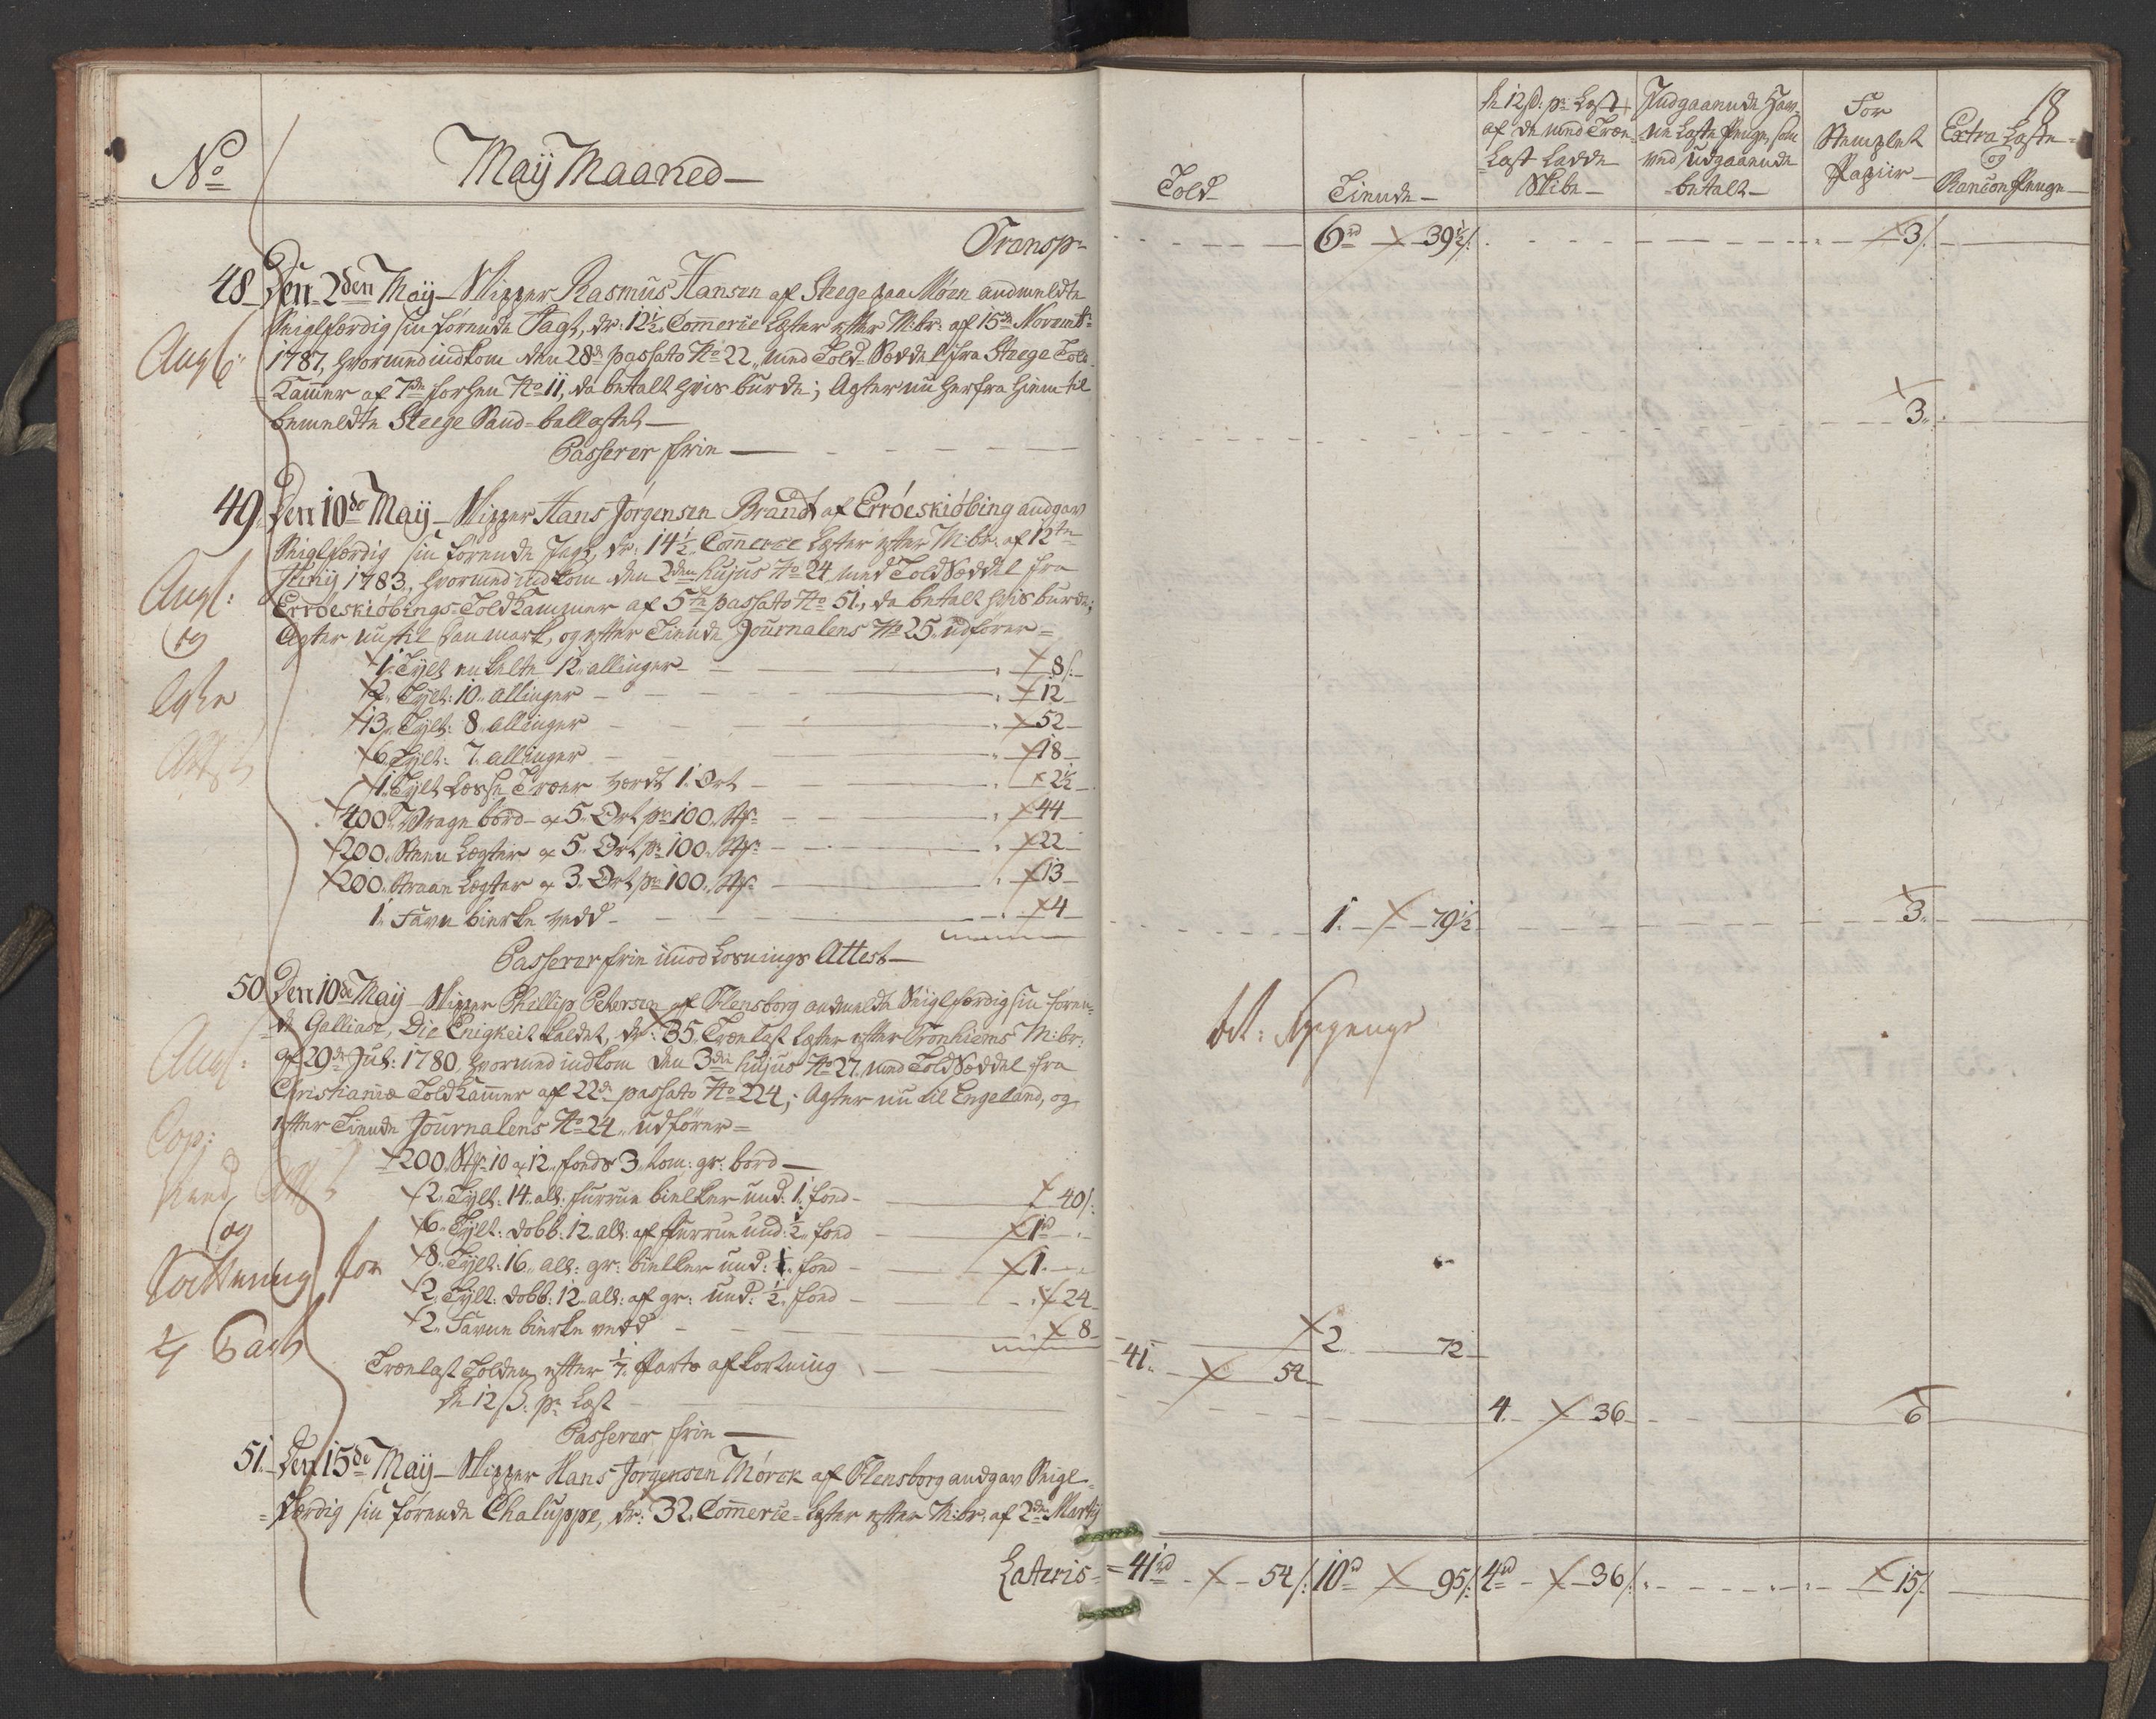 No
Maij Maaned
Transp:
48 Den 2den Maij Skipper Rasmus Hansen af Steege paa Møen andmeldte
Seiglfærdig sin førende Jagt, dr: 12½ Commerce Læster efter M:br: af 15de Novemb:
Ang6:
1787, hvormed indkom den 28de passato No 22, med Told-Seddel fra Steege Told
Kammer af 7de forhen No 11, da betalt hvis burde; Agter nu herfra hiem til
bemeldte Steege Sand-ballastet
Passerer frie
49 Den 10de Maij Skipper Hans Jørgensen Brandt af Erröeskiöbing andgav
Seiglfærdig sin førende Jagt, dr: 14½ Commerce Læster efter M:br: af 12te
Junij 1783, hvormed indkom den 2den hujus No 24 med Told Seddel fra
Angl:
Erröeskiöbings Told Kammer af 5te passato No 51, da betalt hvis burde;
og
Agter nu til Danmark, og efter Tiende Journalens No 25 udfører =
1 Tylt enkelte 12 allinger 8 s:
2 Tylt: 10 allinger 12
13 Tylt: 8 allinger 52
6 Tylt: 7 allinger 18
1 Tylt Losse Træer værdt 1 Ort 2½
400 Vrage bord a 5 Ort pr 100 Stk: 44
200 Steen Lægter a 5 Ort pr 100 Stk: 22
200 Straae Lægter a 3 Ort pr 100 Stk: 13
1 Favn birke vedd 4
Passerer frie imod Losnings Attest
50 Den 10de Maij Skipper Phillip Petersen af Flensborg andmeldte Seiglfærdig sin føren-
de Galliase, Die Enigkeit kaldet, dr: 35 Trælast Læster efter Tronhiems M:br:
Angl:
af 29de Jul: 1780, hvormed indkom den 3die hujus No 27 med Told Seddel fra
Christiania Told Kammer af 22de passato No 224; Agter nu til Engeland, og
Cop:
efter Tiende Journalens No 24 udfører =
1200 Stk: 10 a 12 fods 3 tom: gr: bord
2 Tylt: 14 all: furrue bielker und: 1 fod 40 s:
og
6 Tylt: dobb: 12 all: af furrue und: ½ fod 1rd
for
8 Tylt: 16 all: gr: bielker und: 1 fod 1
2 Tylt: dobb: 12 all: af gr: und: ½ fod 24
2 Favne birke vedd 8
Trælast Tolden efter 1/7 Parts afkortning
De 12 ß: pr Læst
Passerer frie
51 Den 15de Maij Skipper Hans Jørgensen Mörck af Flensborg andgav Seigl-
færdig sin førende Chaluppe, dr: 32 Commerce-Læster efter M:br: af 2den Martij
Lateris
18
Told
Tiende
De 12 ß: pr Læst
af de med Træ-
Last Ladde
Skibe
Indgaaende Hav-
ne Laste Penge, som
ved udgaaende
betalt
For
Stemplet
Papiir
Extra Laste-
og
Rançon Penge
6rd 39½ s: 3 s:
3
1 79½ 3
2 72
41 54
4 36 6
41rd 54 s: 10rd 95 s: 4rd 36 s: 15 s: